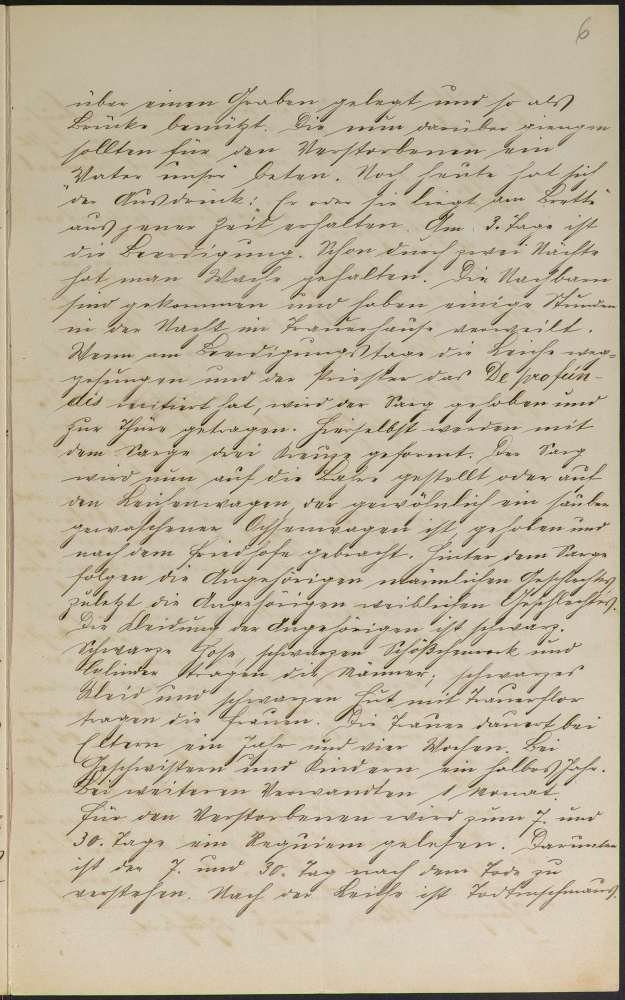 6
über einen Graben gelegt und so als
Brücke benützt. Die nun darüber giengen
sollten für den Verstorbenen ein
Vater unser beten. Noch heute hat sich
der Ausdruck: Er oder sie liegt am Brette
aus jener Zeit erhalten. Am 3. Tage ist
die Beerdigung. Schon durch zwei Nächte
hat man Wache gehalten. Die Nachbarn
sind gekommen und haben einige Stunden
in der Nacht im Trauerhause verweilt.
Wenn am Beerdigungstage die Leiche weg=
gesungen und der Priester das De profun-
dis recitiert hat, wird der Sarg gehoben und
zur Thüre getragen. Hierselbst werden mit
dem Sarge drei Kreuze geformt. Der Sarg
wird nun auf die Bahre gestellt oder auf
den Leichenwagen der gewöhnlich ein sauber
gewaschener Ochsenwagen ist, gehoben und
nach dem Friedhofe gebracht. Hinter dem Sarge
folgen die Angehörigen männlichen Geschlechtes
zuletzt die Angehörigen weiblichen Geschlechtes.
Die Kleidung der Angehörigen ist schwarz.
Schwarze Hose, schwarzen Schößchenrock und
Cylinder tragen die Männer, schwarzes
Kleid und schwarzen Hut mit Trauerflor
tragen die Frauen. Die Trauer dauert bei
Eltern ein Jahr und vier Wochen. Bei
Geschwistern und Kindern ein halbes Jahr.
Bei weiteren Verwandten 1 Monat.
Für den Verstorbenen wird zum 7. und
30. Tage ein Requiem gelesen. Darunter
ist der 7. und 30. Tag nach dem Tode zu
verstehen. Nach der Leiche ist Todtenschmaus.